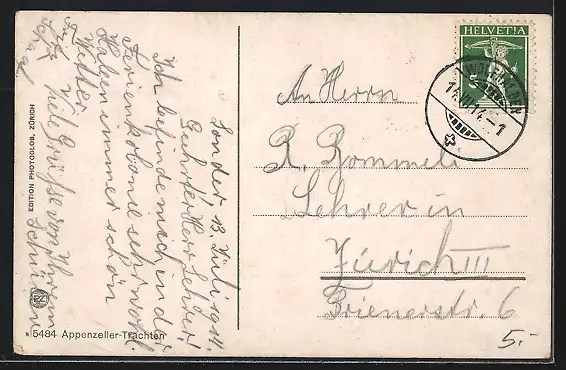 Sonder 13. Juli 1914.
Geehrter Herr Lehrer!
Ich befinde mich in der
Ferienkolonie sehr wohl.
Haben immer schön
Wetter.
viel Grüsse von Ihrem
Schüler
EDITION PHOTOGLOB, ZÜRICH
5484 Appenzeller-Trachten
HELVETIA
14.VII.14.-1
An Herrn
R. Rommeli
Lehrer in
Zürich III
Brienerstr. 6
5.-